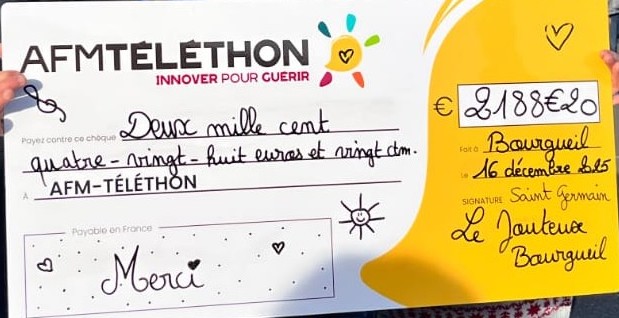 AFMTÉLÉTHON
INNOVER POUR GUÉRIR
Payez contre ce chèque Deux mille cent
quatre-vingt-huit euros et vingt ctm.
À AFM-TÉLÉTHON
€ 2188€20
Fait à Bourgueil
Le 16 décembre 2025
SIGNATURE Saint Germain
Le Jouteux
Bourgueil
Payable en France
Merci